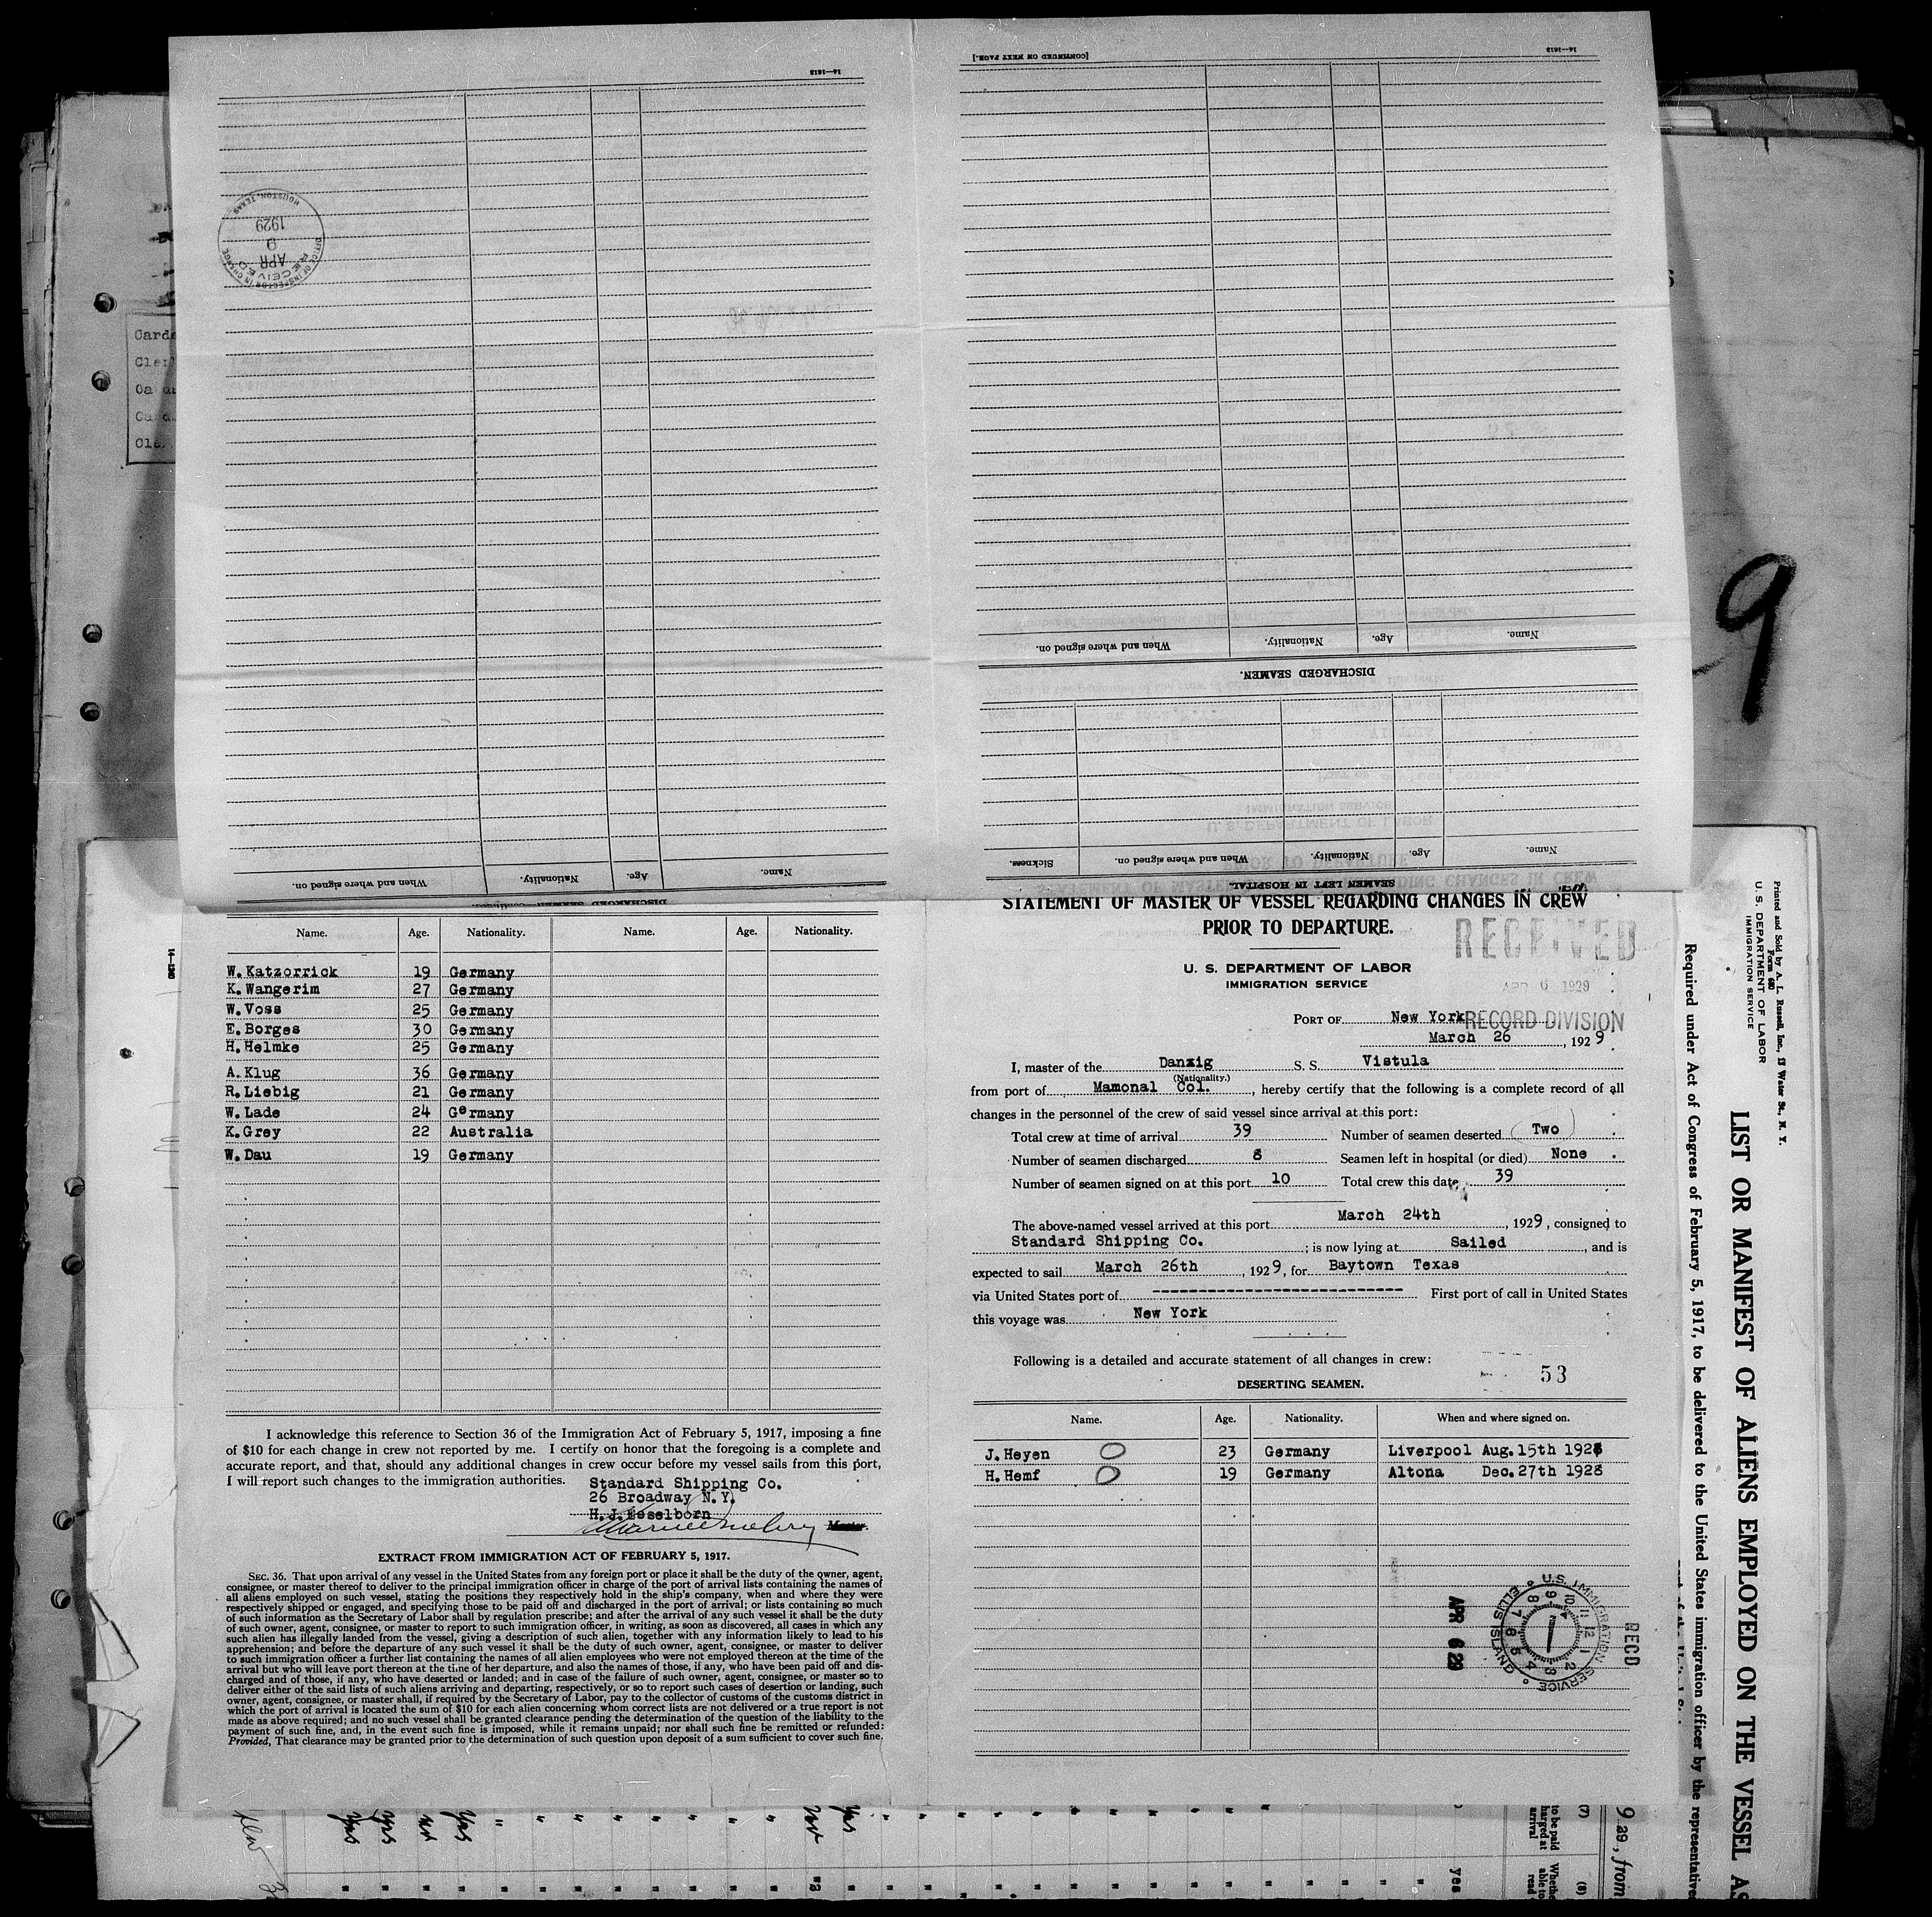 14—1613
[CONTINUED ON NEXT PAGE.]
14—1613
OFFICE OF INSPECTOR IN CHARGE
RECEIVED
APR
9
1929
HOUSTON, TEXAS
When and where signed on. Nationality. Age. Name.
DISCHARGED SEAMEN.
Sickness. When and where signed on. Nationality. Age. Name.
SEAMEN LEFT IN HOSPITAL
When and where signed on. Nationality. Age. Name.
9
Name. Age. Nationality. Name. Age. Nationality.
W. Katzorrick 19 Germany
K. Wangerim 27 Germany
W. Voss 25 Germany
E. Borges 30 Germany
H. Helmke 25 Germany
A. Klug 36 Germany
R. Liebig 21 Germany
W. Lade 24 Germany
K. Grey 22 Australia
W. Dau 19 Germany
I acknowledge this reference to Section 36 of the Immigration Act of February 5, 1917, imposing a fine
of $10 for each change in crew not reported by me. I certify on honor that the foregoing is a complete and
accurate report, and that, should any additional changes in crew occur before my vessel sails from this port,
I will report such changes to the immigration authorities.
Standard Shipping Co.
26 Broadway N.Y.
H.J. Esselborn
Master.
EXTRACT FROM IMMIGRATION ACT OF FEBRUARY 5, 1917.
SEC. 36. That upon arrival of any vessel in the United States from any foreign port or place it shall be the duty of the owner, agent,
consignee, or master thereof to deliver to the principal immigration officer in charge of the port of arrival lists containing the names of
all aliens employed on such vessel, stating the positions they respectively hold in the ship's company, when and where they were
respectively shipped or engaged, and specifying those to be paid off and discharged in the port of arrival; or lists containing so much
of such information as the Secretary of Labor shall by regulation prescribe; and after the arrival of any such vessel it shall be the duty
of such owner, agent, consignee, or master to report to such immigration officer, in writing, as soon as discovered, all cases in which any
such alien has illegally landed from the vessel, giving a description of such alien, together with any information likely to lead to his
apprehension; and before the departure of any such vessel it shall be the duty of such owner, agent, consignee, or master to deliver
to such immigration officer a further list containing the names of all alien employees who were not employed thereon at the time of the
arrival but who will leave port thereon at the time of her departure, and also the names of those, if any, who have been paid off and dis-
charged and of those, if any, who have deserted or landed; and in case of the failure of such owner, agent, consignee, or master so to
deliver either of the said lists of such aliens arriving and departing, respectively, or so to report such cases of desertion or landing, such
owner, agent, consignee, or master shall, if required by the Secretary of Labor, pay to the collector of customs of the customs district in
which the port of arrival is located the sum of $10 for each alien concerning whom correct lists are not delivered or a true report is not
made as above required; and no such vessel shall be granted clearance pending the determination of the question of the liability to the
payment of such fine, and, in the event such fine is imposed, while it remains unpaid; nor shall such fine be remitted or refunded:
Provided, That clearance may be granted prior to the determination of such question upon deposit of a sum sufficient to cover such fine.
STATEMENT OF MASTER OF VESSEL REGARDING CHANGES IN CREW
PRIOR TO DEPARTURE.
RECEIVED
APR 6 1929
RECORD DIVISION
U. S. DEPARTMENT OF LABOR
IMMIGRATION SERVICE
PORT OF New York
March 26, 1929
I, master of the Danzig S. S. Vistula
(Nationality.)
from port of Mamonal Col., hereby certify that the following is a complete record of all
changes in the personnel of the crew of said vessel since arrival at this port:
Total crew at time of arrival 39 Number of seamen deserted Two
Number of seamen discharged 8 Seamen left in hospital (or died) None
Number of seamen signed on at this port 10 Total crew this date 39
The above-named vessel arrived at this port March 24th, 1929, consigned to
Standard Shipping Co.; is now lying at Sailed, and is
expected to sail March 26th, 1929, for Baytown Texas
via United States port of ---------------------------- First port of call in United States
this voyage was New York
Following is a detailed and accurate statement of all changes in crew:
53
DESERTING SEAMEN.
Name. Age. Nationality. When and where signed on.
J. Heyen 23 Germany Liverpool Aug. 15th 1928
H. Hemf 19 Germany Altona Dec. 27th 1928
RECD
U.S. IMMIGRATION SERVICE
ELLIS ISLAND
APR 6 29
Printed and Sold by A. L. Russell, Inc., 12 Water St., N. Y.
Form 680
U. S. DEPARTMENT OF LABOR
IMMIGRATION SERVICE
LIST OR MANIFEST OF ALIENS EMPLOYED ON THE VESSEL AS
Required under Act of Congress of February 5, 1917, to be delivered to the United States immigration officer by the representative
14—1240
yes
(7)
to be paid
charged at
arrival
(8)
Whether
able to
read
9 29, from